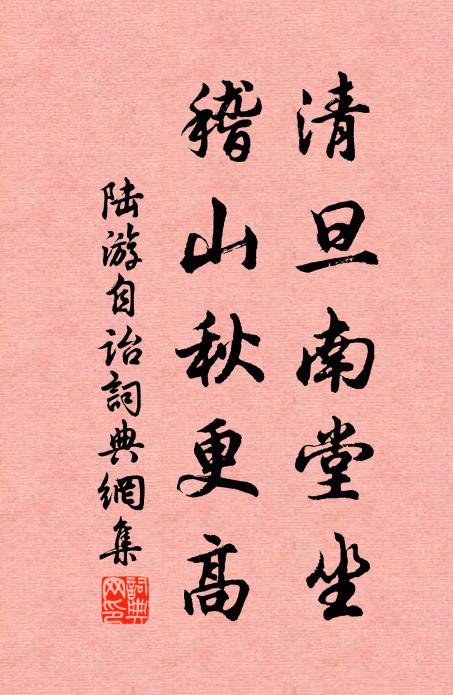 清旦南堂坐
稽山秋更高
陆游自诒詞典網集
詞典网印